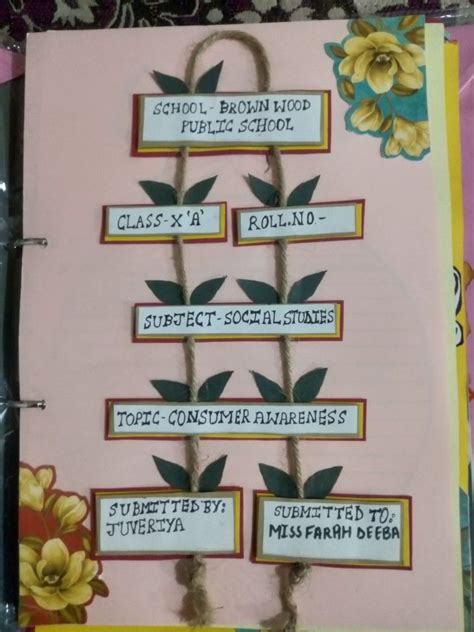 SCHOOL - BROWN WOOD
PUBLIC SCHOOL
CLASS - X 'A'
ROLL.NO -
SUBJECT - SOCIAL STUDIES
TOPIC - CONSUMER AWARENESS
SUBMITTED BY:
JUVERIYA
SUBMITTED TO:
MISS FARAH DEEBA